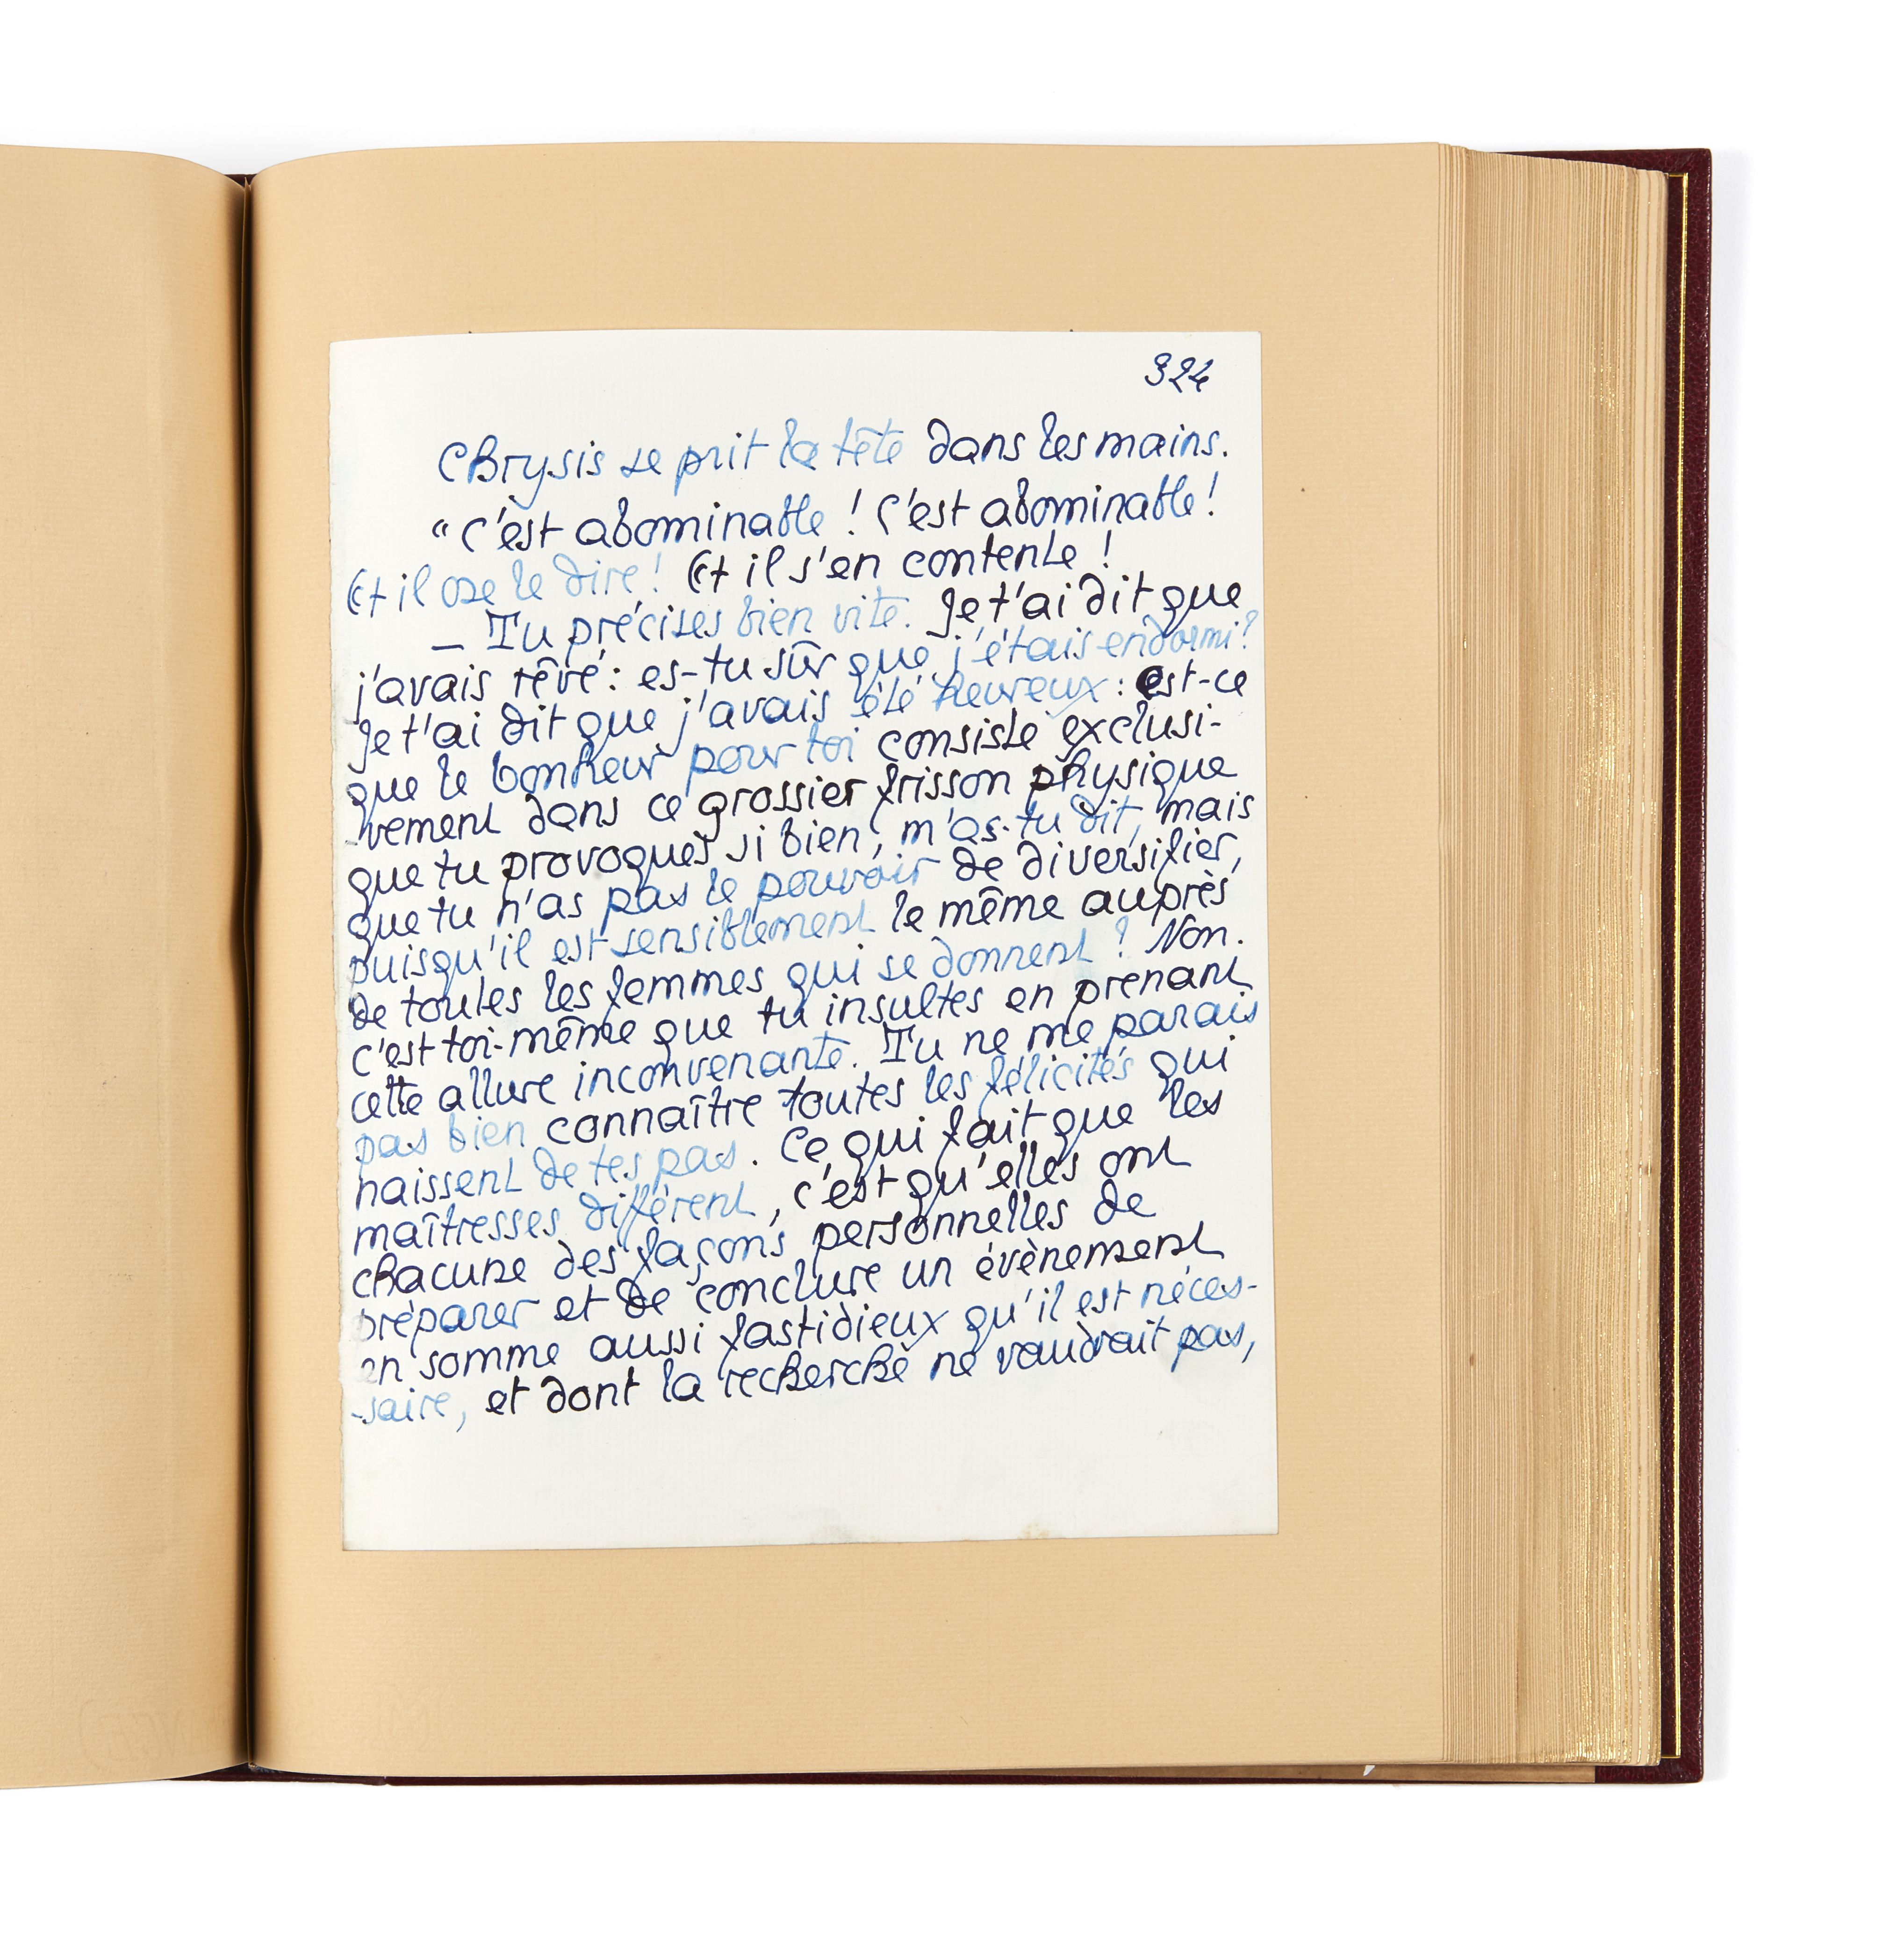 324
Chrysis se prit la tête dans les mains.
"C'est abominable ! C'est abominable !
Et il ose le dire ! Et il s'en contente !
— Tu précises bien vite. Je t'ai dit que
j'avais rêvé : es-tu sûr que j'étais endormi ?
Je t'ai dit que j'avais été heureux : est-ce
que le bonheur pour toi consiste exclusi-
-vement dans ce grossier frisson physique
que tu provoques si bien, m'as-tu dit, mais
que tu n'as pas le pouvoir de diversifier,
puisqu'il est sensiblement le même auprès
de toutes les femmes qui se donnent ? Non.
C'est toi-même que tu insultes en prenant
cette allure inconvenante. Tu ne me parais
pas bien connaître toutes les félicités qui
naissent de tes pas. Ce qui fait que les
maîtresses diffèrent, c'est qu'elles ont
chacune des façons personnelles de
préparer et de conclure un évènement
en somme aussi fastidieux qu'il est néces-
-saire, et dont la recherche ne vaudrait pas,